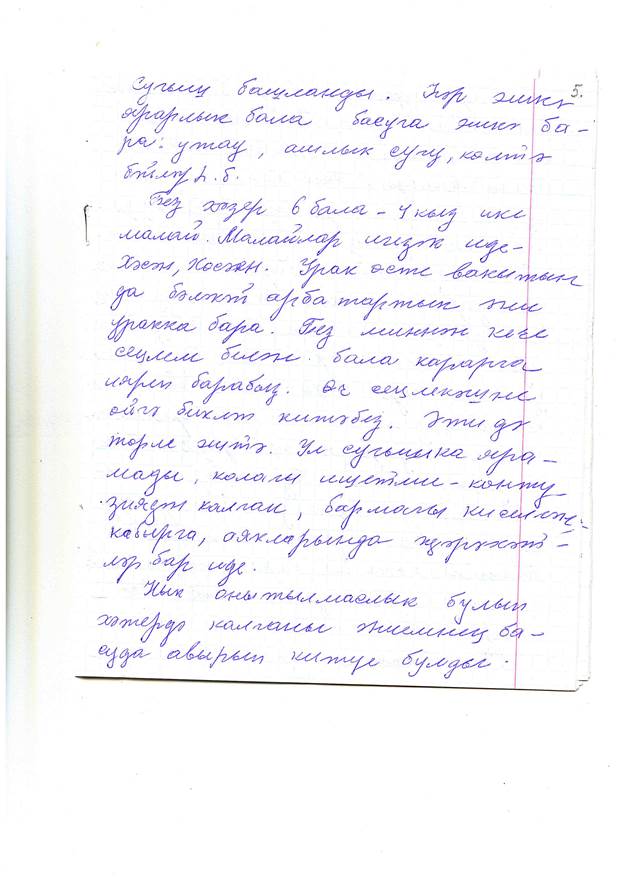 5.
Сугыш башланды. Һәр эшкә
ярарлык бала басуга эшкә ба-
ра: утау, ашлык сугу, көлтә
бәйләү һ. б.
Без хәзер 6 бала – 4 кыз ике
малай. Малайлар игезәк иде-
Хәсән, Хөсәен. Урак өсте вакытын
да бәләкәй арба тартып әни
уракка бара. Без миннән кече
сеңлем белән бала карарга
ияреп барабыз. Өч сеңлекәшне
өйгә бикләп китәбез. Әти дә
төрле эштә. Ул сугышка яра-
мады, колагы ишетми – конту
зиядән калган, бармагы киселгән,
кабырга, аякларында җәрәхәт-
ләр бар иде.
Нык онытылмаслык булып
хәтердә калганы әниемнең ба-
суда авырып китүе булды.